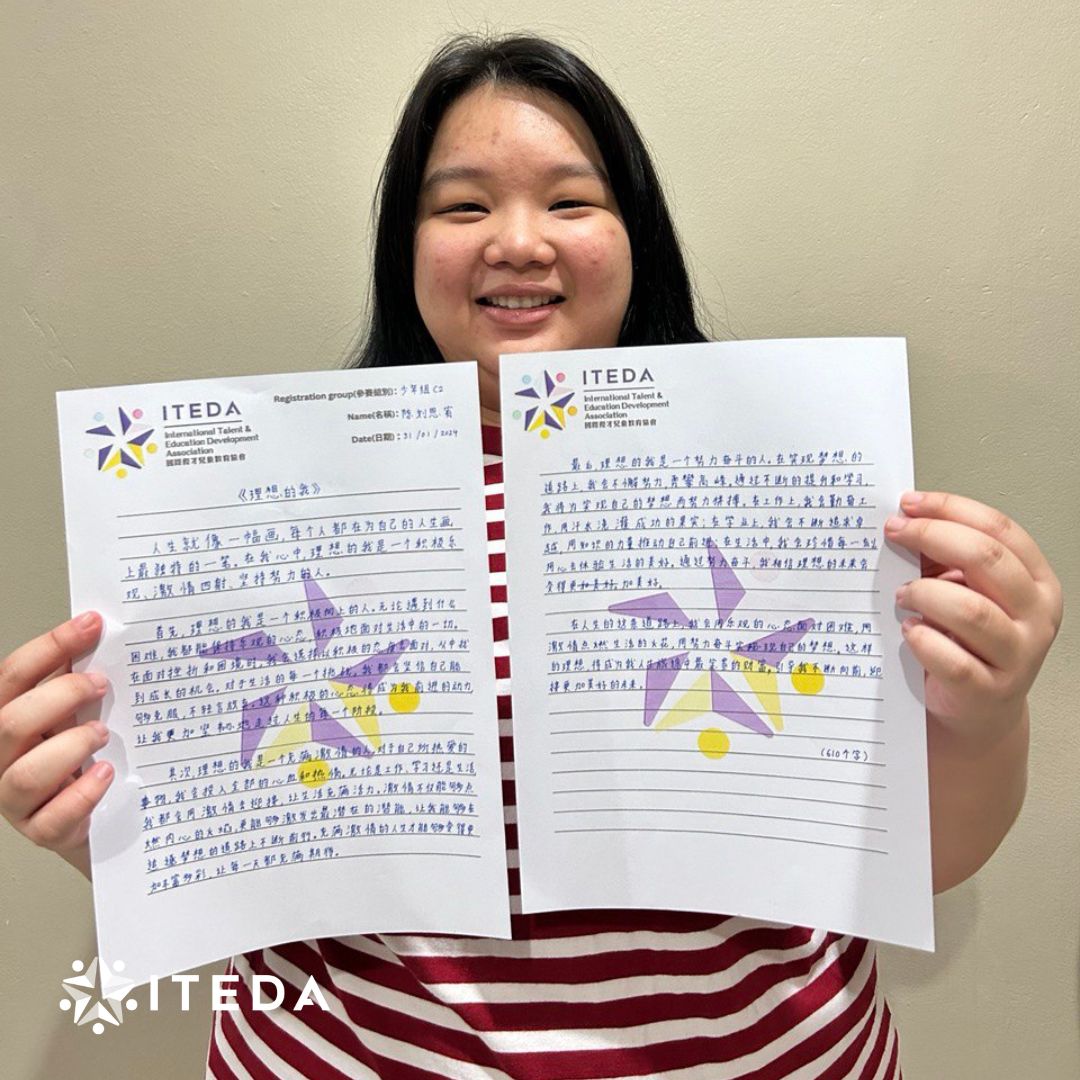 ITEDA
International Talent &
Education Development
Association
國際優才兒童教育協會
Registration group(參賽組別): 少年組 C2
Name(名稱): 陈刘思宥
Date(日期): 31/01/2024
《理想的我》
人生就像一幅画，每个人都在为自己的人生画
上最独特的一笔。在我心中，理想的我是一个积极乐
观、激情四射、坚持努力的人。
首先，理想的我是一个积极向上的人。无论遇到什么
困难，我都能保持乐观的心态，积极地面对生活中的一切。
在面对挫折和困境时，我会选择以积极的态度去面对，从中找
到成长的机会。对于生活的每一个挑战，我都会坚信自己能
够克服，不轻言放弃。这种积极的心态将成为我前进的动力，
让我更加坚韧地走过人生的每一个阶段。
其次，理想的我是一个充满激情的人。对于自己所热爱的
事物，我会投入全部的心血和热情。无论是工作、学习还是生活，
我都会用激情去迎接，让生活充满活力。激情不仅能够点
燃内心的火焰，更能够激发出最潜在的潜能，让我能够在
追逐梦想的道路上不断前行。充满激情的人生才能够变得更
加丰富多彩，让每一天都充满期待。
ITEDA
International Talent &
Education Development
Association
國際優才兒童教育協會
最后，理想的我是一个努力奋斗的人。在实现梦想的
道路上，我会不懈努力，勇攀高峰。通过不断的提升和学习，
我将为实现自己的梦想而努力拼搏。在工作上，我会勤奋工
作，用汗水浇灌成功的果实；在学业上，我会不断追求卓
越，用知识的力量推动自己前进；在生活中，我会珍惜每一
用心去体验生活的美好。通过努力奋斗，我相信理想的未来会
变得更加美好。
在人生的这条道路上，我会用乐观的心态面对困难，用
激情点燃生活的火花，用努力奋斗实现自己的梦想。这样
的理想，将成为我人生旅途中最宝贵的财富，引导我不断向前，迎
接更加美好的未来。
(610个字)
ITEDA